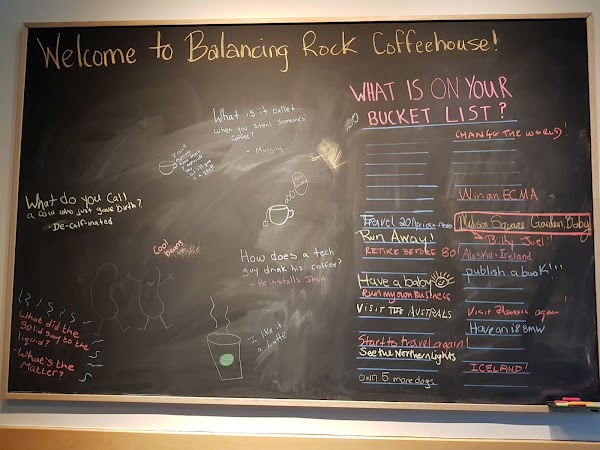 Welcome to Balancing Rock Coffeehouse!
What is it called
when you steal someone's
coffee?
- Mugging
What do you call
a cow who just gave birth?
- De-calf-inated
Cool
beans
How does a tech
guy drink his coffee?
- He installs JAVA
I like it
a Latte
What did the
solid say to the
liquid?
- What's the
Matter?
WHAT IS ON YOUR
BUCKET LIST?
Travel 20
Run Away!
RETIRE BEFORE 80!
Have a baby
Run my own Business
VISIT THE AUSTRALS
Start to travel again!
See the Northern Lights
own 5 more dogs
CHANGE THE WORLD!
Win an ECMA
Madison Square Garden, Baby
Billy Joel!
Alaska + Ireland
publish a book!!!
Visit Hawaii again!
Have an i8 BMW
ICELAND!